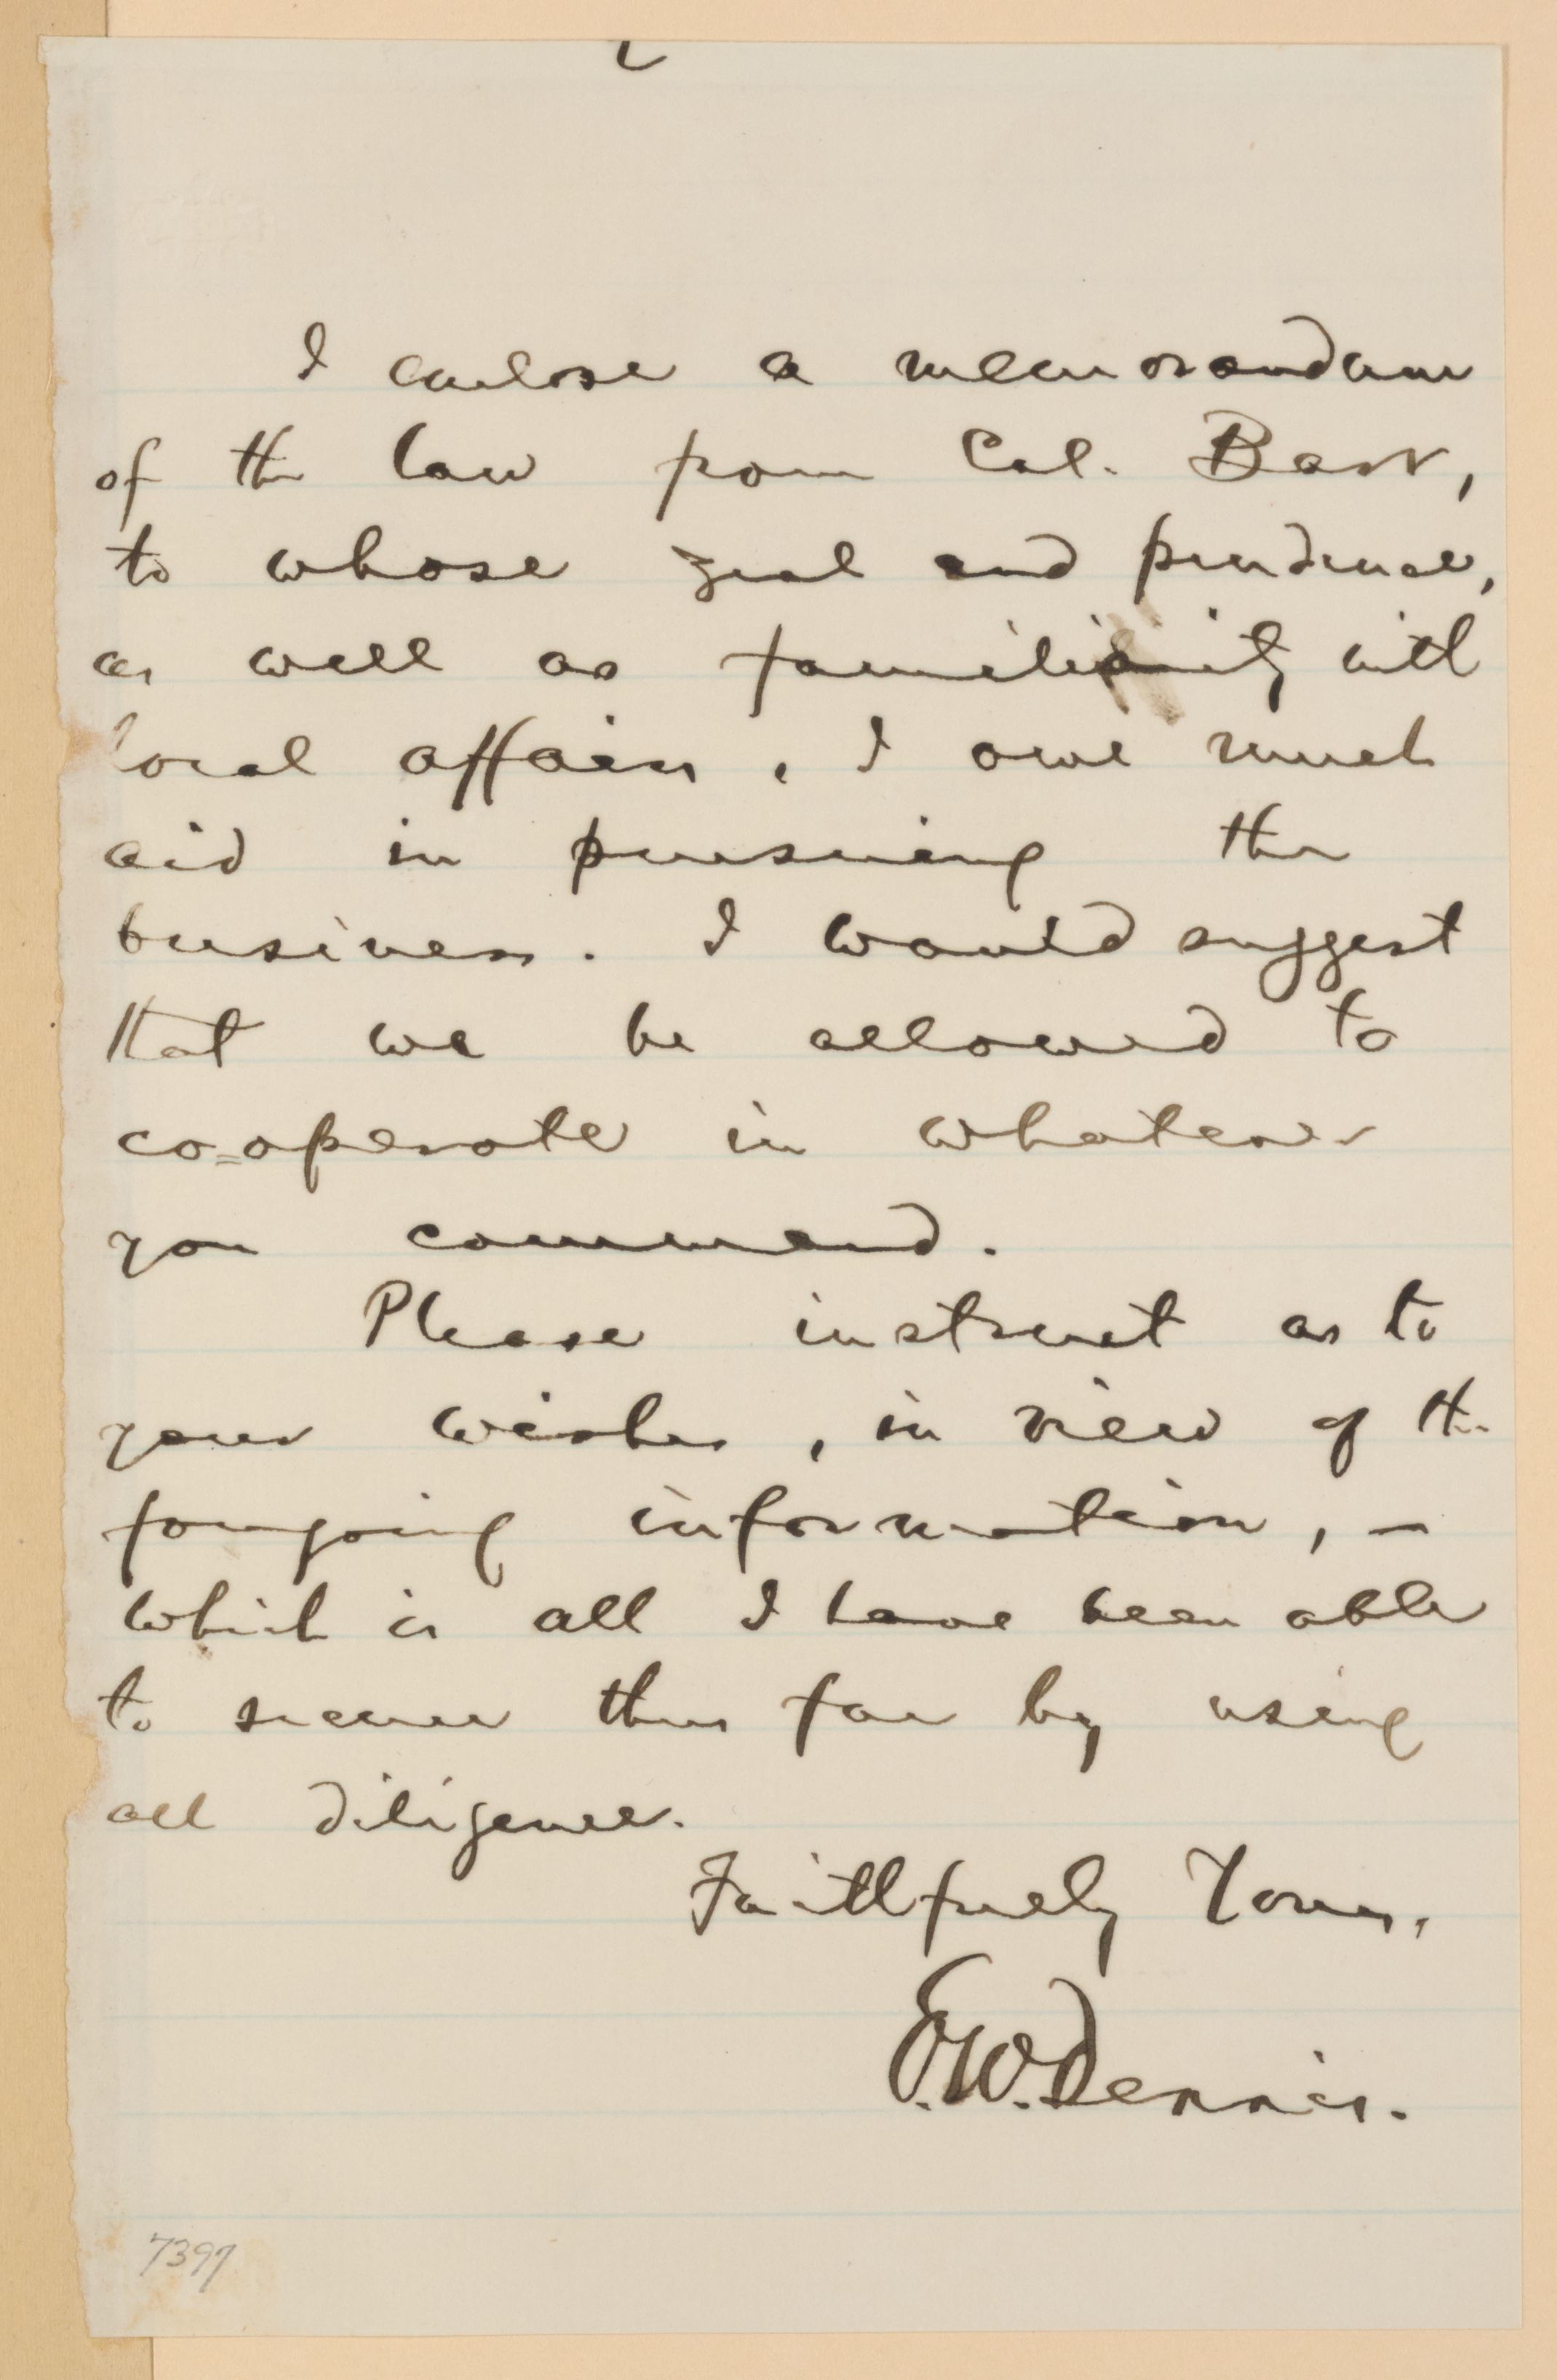 I enclose a memorandum
of the law from Col. Barr,
to whose zeal and prudence,
as well as familiarity with
local affairs, I owe much
aid in pursuing the
business. I would suggest
that we be allowed to
co=operate in whatever
you command.
Please instruct as to
your wishes, in view of the
foregoing information, —
which is all I have been able
to secure thus far by using
all diligence.
Faithfully Yours,
E.W. Dennis.
7397